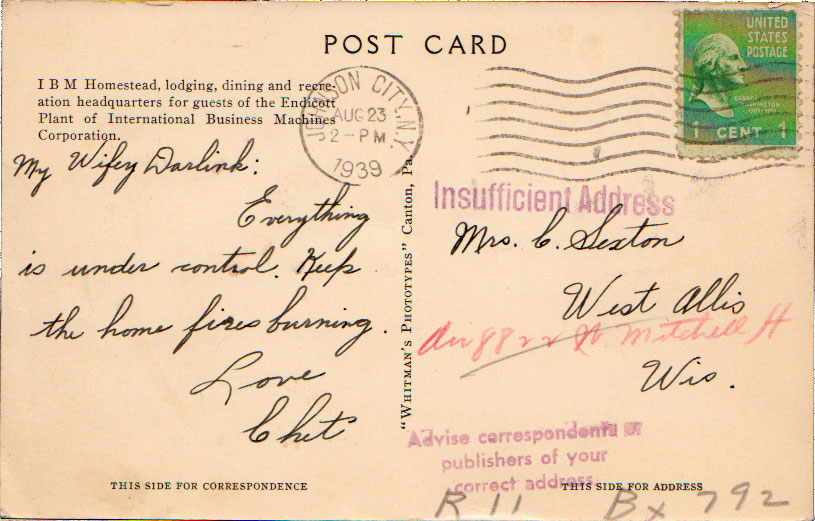 POST CARD
I B M Homestead, lodging, dining and recre-
ation headquarters for guests of the Endicott
Plant of International Business Machines
Corporation.
JOHNSON CITY, N.Y.
AUG 23
2 - PM
1939
UNITED
STATES
POSTAGE
1 CENT 1
My Wifey Darlink:
Everything
is under control. Keep
the home fires burning.
Love
Chet
"WHITMAN'S PHOTOTYPES" Canton, Pa.
Insufficient Address
Mrs. C. Sexton
West Allis
8822 W. Mitchell
Wis.
Advise correspondents or
publishers of your
correct address
THIS SIDE FOR CORRESPONDENCE
THIS SIDE FOR ADDRESS
R 11 Bx 792